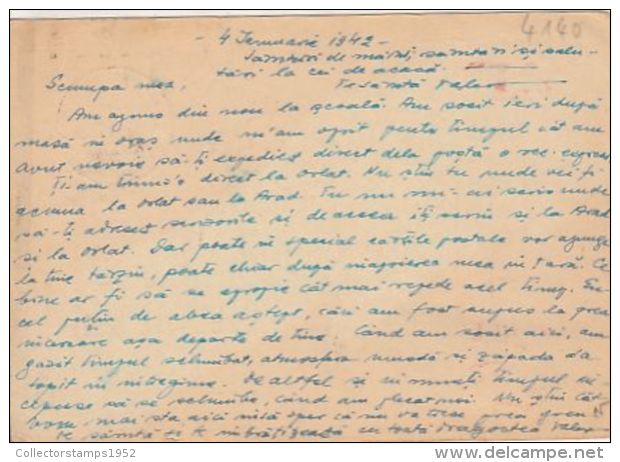 4140
- 4 Ianuarie 1942 -
de mărit, sărutări și salu-
tări la cei de acasă.
Scumpa mea,
Te sărută Valer
Am ajuns din nou la școală. Am sosit ieri după
masă în oraș unde m'am oprit pentru timpul cât am
avut nevoie să-ți expediez direct dela poștă o rec. expres
Ți-am trimis'o direct la Orlat. Nu știu tu unde vei fi
acuma la Orlat sau la Arad. Tu nu mi-ai scris unde
să-ți adresez scrisorile și de aceea îți scriu și la Arad
și la Orlat. Dar poate în special cărțile postale vor ajunge
la tine târziu, poate chiar după înapoierea mea în țară. Ce
bine ar fi să se apropie cât mai repede acel timp. În-
cel puțin de abea aștept, căci am fost supus la grea
încercare așa departe de tine. Când am sosit aici, am
găsit timpul schimbat, atmosfera umedă și zăpada s'a
topit în întregime. De altfel și în munți timpul în-
cepuse să se schimbe, când am plecat noi. Nu știu cât
vom mai sta aici însă sper că nu va trece prea greu
Te sărută și te îmbrățișează cu toată dragostea Valer
Collectorstamps1952
delcampe.net